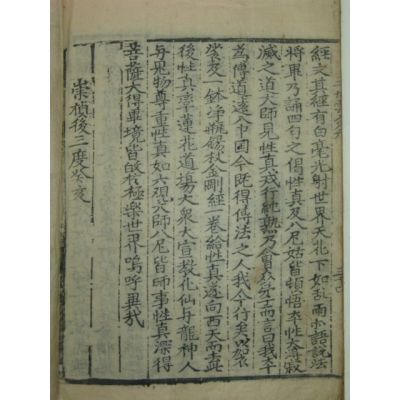 經文其經有白毫光射世界天花下如乱雨示語說法
將畢乃誦四句之偈性真及八尼姑皆頓悟本性大得寂
滅之道大師見性真戒行純熟乃會衆弟子而言曰我本
爲傳道遠入中國今既得傳法之人我今行矣以袈
裟及一鉢浄瓶錫杖金剛經一卷給性真遂向西天而去此
後性真率蓮花道場大衆大宣教化仙与龍神人
与鬼物尊重性真如六觀大師八尼皆師事性真深得
菩薩大得畢境皆敀於極樂世界嗚呼異哉
崇禎後三度癸亥